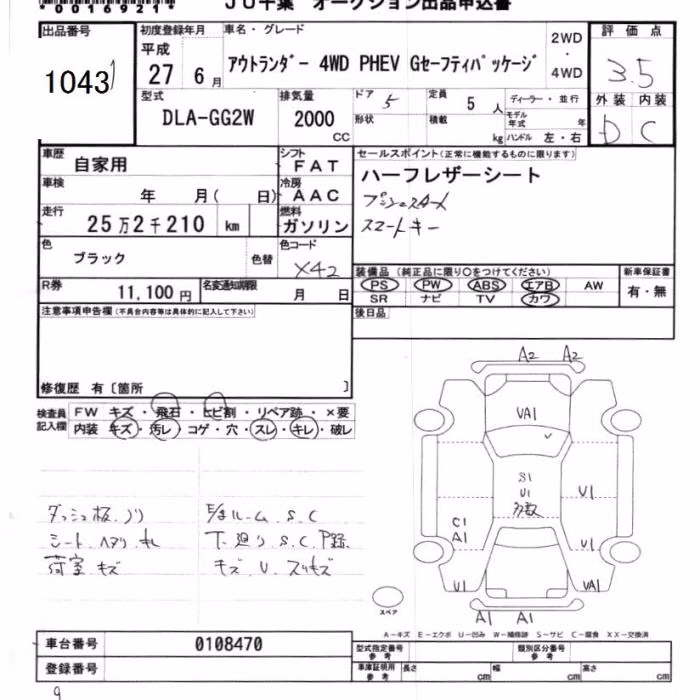 *0016921*
JU千葉 オークション出品申込書
出品番号
1043
初度登録年月
平成
27 6月
車名・グレード
アウトランダー 4WD PHEV Gセーフティパッケージ
2WD
・
4WD
評価点
3.5
型式
DLA-GG2W
排気量
2000
CC
ドア 5
定員 5 人
形状
積載 kg
ディーラー・並行
モデル年式 年
ハンドル 左・右
外装 内装
D C
車歴
自家用
シフト
FAT
車検
年 月( 日)
冷房
AAC
走行
25万2千210 km
燃料
ガソリン
色
ブラック
色替
色コード
X42
R券
11,100円
名変通知期限
月 日
セールスポイント(正常に機能するものに限ります)
ハーフレザーシート
プッシュスタート
スマートキー
装備品 (純正品に限り○をつけてください)
PS PW ABS エアB AW
SR ナビ TV カワ
新車保証書
有・無
後日品
注意事項申告欄(不具合内容等は具体的に記入して下さい)
修復歴 有〔箇所 〕
検査員
記入欄
FW キズ・飛石・ヒビ割・リペア跡・×要
内装 キズ・汚レ・コゲ・穴・スレ・キレ・破レ
ダッシュ板、ノリ
シート、ヘタリ、キレ
荷室 キズ
E/gルーム、S、C
下廻り、S、C
キズ、U、スリキズ
A2 A2
VA1
S1
U1
多数
U1
C1
A1
U1
U1
VA1
A1 A1
スペア
A-キズ E-エクボ U-凹み W-補修跡 S-サビ C-腐食 XX-交換済
車台番号
0108470
登録番号
型式指定番号
参考
類別区分番号
参考
車庫証明用
参考
長さ cm
幅 cm
高さ cm
9